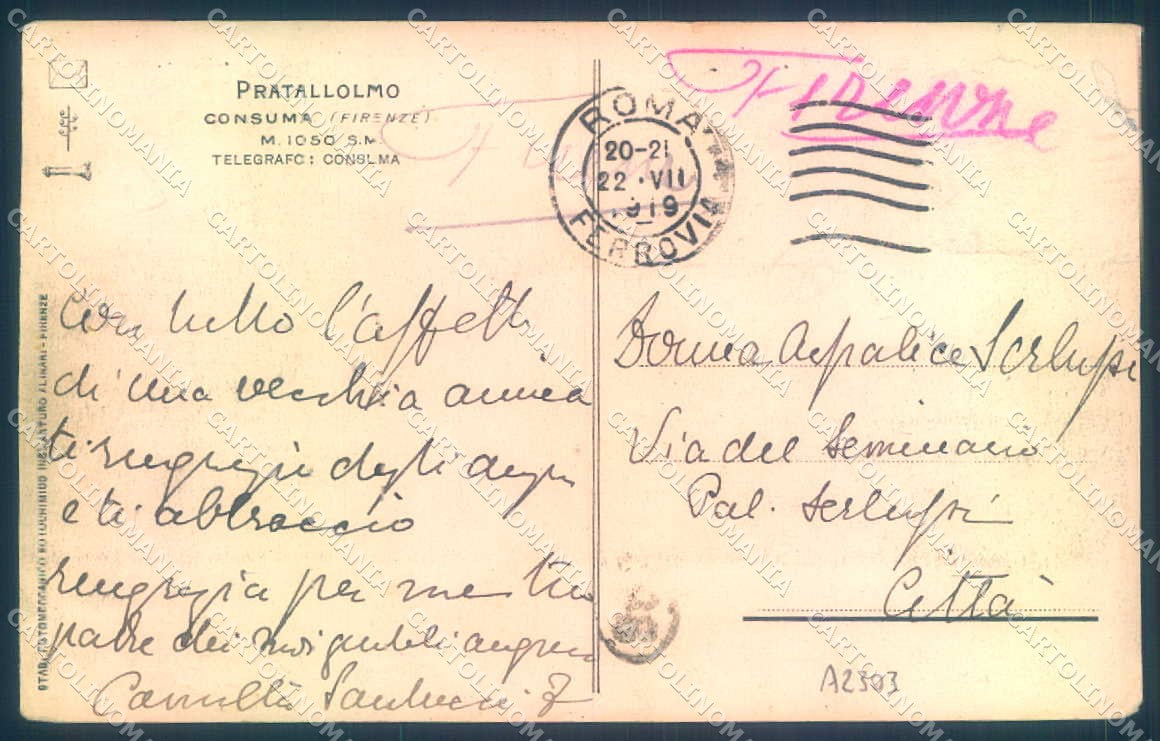 PRATALLOLMO
CONSUMA (FIRENZE)
M. 1050 S.M.
TELEGRAFO: CONSUMA
STAB. FOTOMECCANICO ARTURO ALINARI - FIRENZE
Firenze
ROMA
20-21
22 · VII
1919
FERROVIA
Con tutto l'affetto
di una vecchia amica
ti ringrazio degli auguri
e ti abbraccio
ringrazia per me tuo
padre dei suoi auguri
Camilla
Donna Aspalice Serlupi
Via del Seminario
Pal. Serlupi
Città
A2303
CARTOLINOMANIA